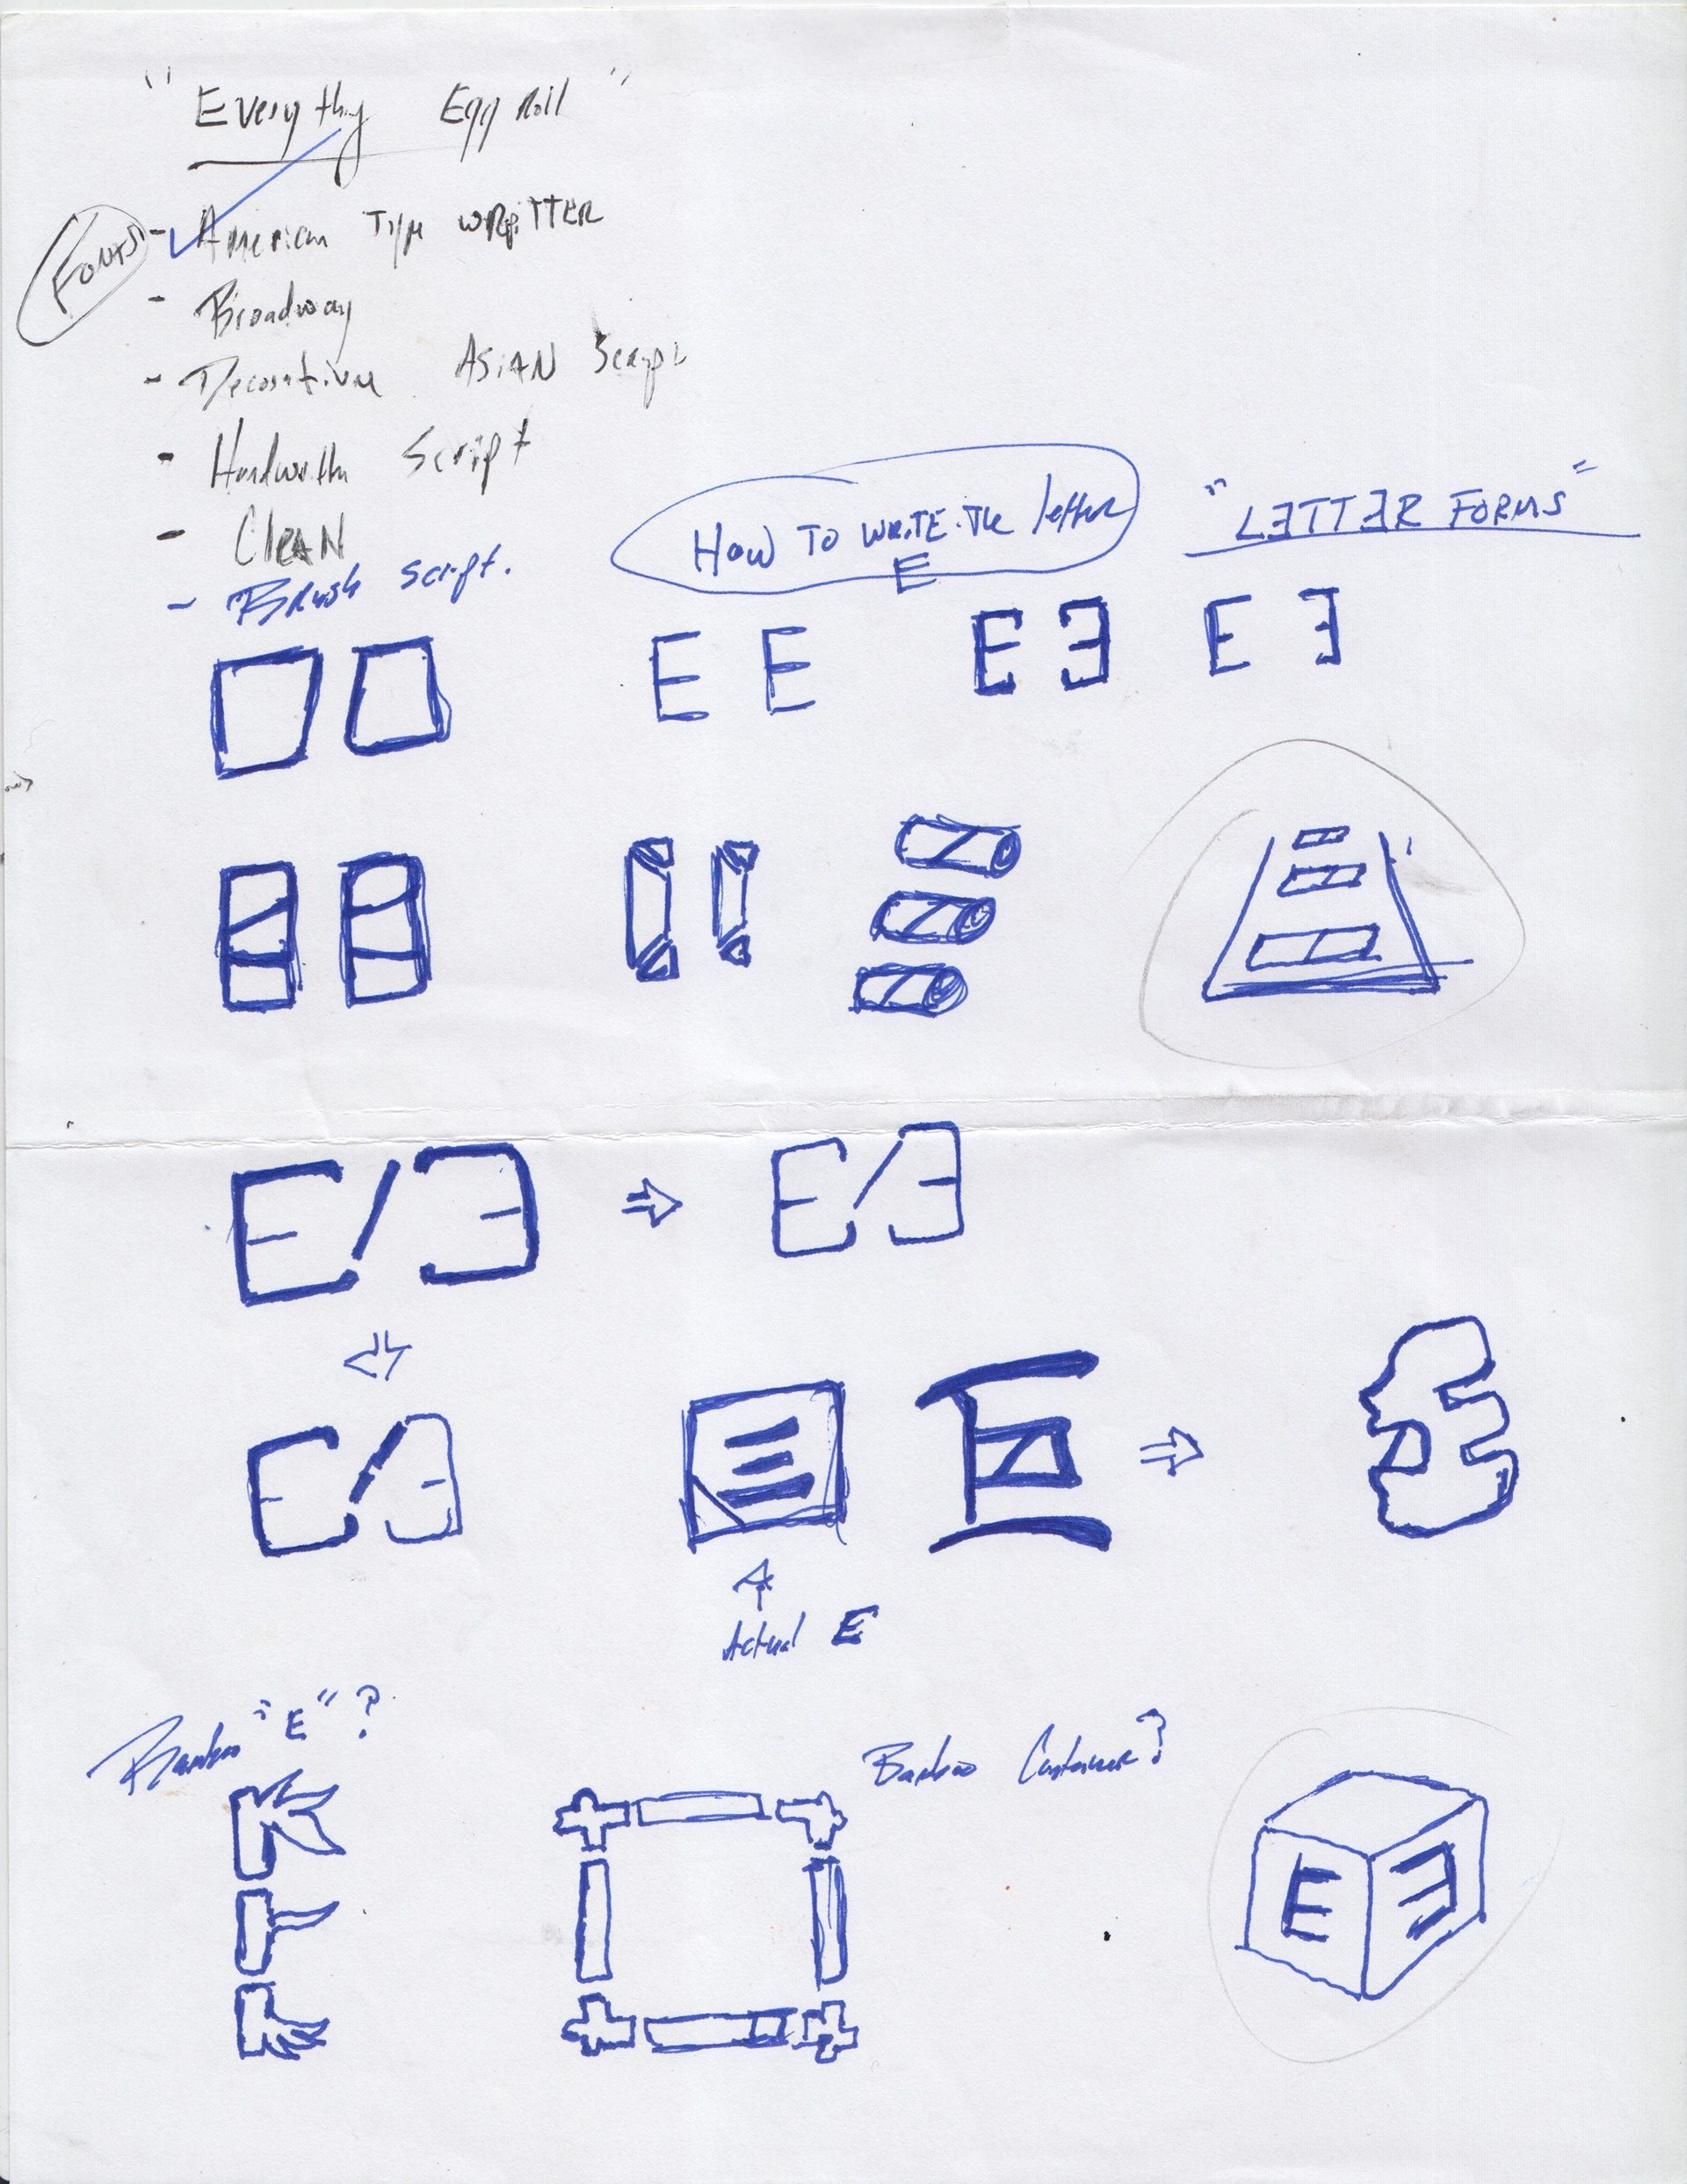 "Everythg Egg Roll"
Fonts
- American Type WRITTER
- Broadway
- Decorative ASIAN Script
- Handwrttn Script
- CleAN
- Brush script.
HOW TO WRITE THE letter
E
"LƎTTƎR FORMS"
E E E Ǝ E Ǝ
E/Ǝ ⇒ E/Ǝ
E/Ǝ
Actual E
Bamboo "E"?
Bamboo Container?
E Ǝ